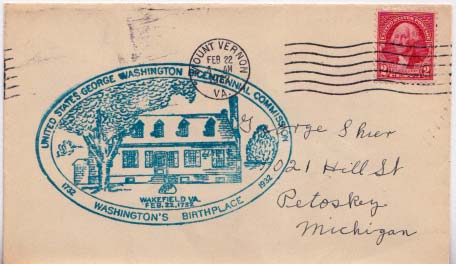 MOUNT VERNON
FEB 22
AM
VA.
UNITED STATES POSTAGE
2 2
UNITED STATES GEORGE WASHINGTON BICENTENNIAL COMMISSION
1732 1932
WAKEFIELD VA.
FEB. 22, 1732
WASHINGTON'S BIRTHPLACE
George Shier
1021 Hill St
Petoskey
Michigan